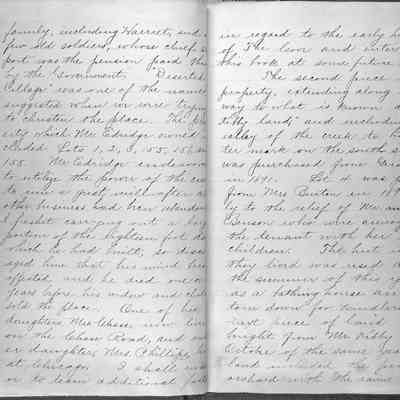 family, including Harriet, and a
few old soldiers, whose chief s
port was the pension paid th
by the Government. Deserted
Village was one of the names
suggested when we were trying
to christen the place. The
erty which Mr. Edridge owned
cluded Lots 1, 2, 3, 155, 156 an
158. Mr. Edridge endeavor
to utilize the power of the cre
to run a grist mill after a
other business had been abandon
I forget carrying out a large
portion of the eighteen foot da
which he had built, so disc
aged him that his mind be
affected, and he died one
years before his widow and chil
sold the place. One of his
daughters Mrs. Chase, now lives
on the Chase Road, and
er daughter, Mrs. Phillips,
at Chicago. I shall
or to learn additional fac
in regard to the early h
of The and inter
this book at some future
The second piece
property, extending along
way to what is known a
land" and includin
valley of the creek to hi
ter mark on the south s
was purchased from
in 1891. Lot 4 was p
from Mrs. Burton in 189
is to the relief of Mr. an
Benson who were
the tenant with her
children. The hut
they lived was used
the summer of this y
as a bathing house an
torn down for
next piece of land
bought from Mr.
October of the same yea
land included the
orchard with the same